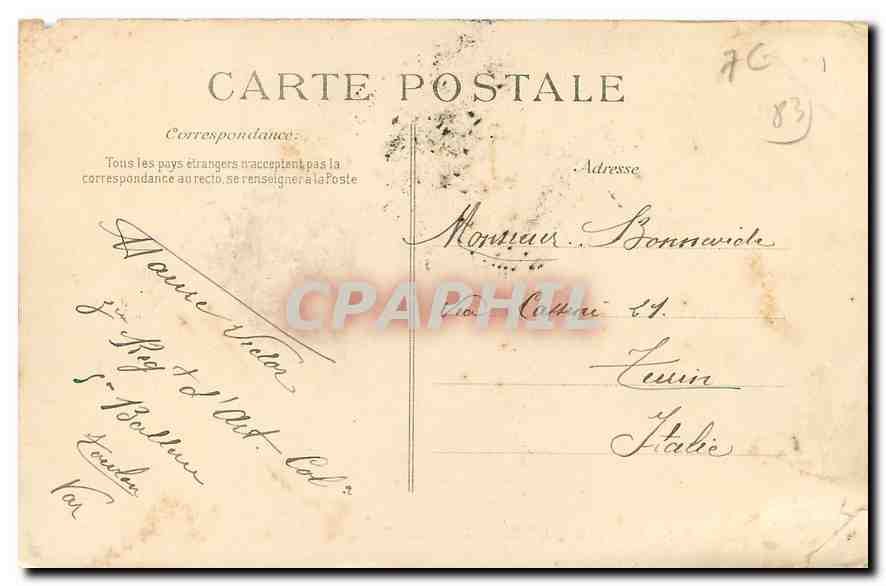 7G
83
CARTE POSTALE
Correspondance:
Tous les pays étrangers n'acceptent pas la
correspondance au recto, se renseigner à la Poste
Adresse
Victor
Regt d'Art. Cole
5e Batterie
Toulon
Var
Monsieur Bonnevide
Via Cassini 21.
Turin
Italie
CPAPHIL